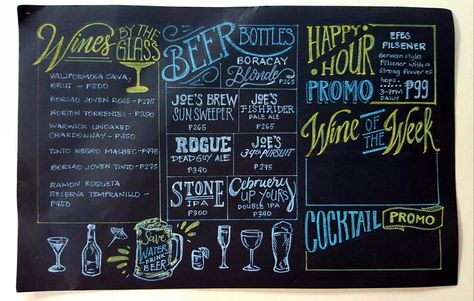 Wines BY THE GLASS
VALIFORMOSA CAVA,
BRUT - P500
BORSAO JOVEN ROSE - P275
NOBION TORRENTES - P390
WARWICK UNOAKED
CHARDONNAY - P500
TINTO NEGRO MALBEC - P475
BORSAO JOVEN TINTO - P275
RAMON ROQUETA
RESERVA TEMPRANILLO -
P450
BEER BOTTLES
BORACAY
Blonde
P265
JOE'S BREW
SUN SWEEPER
P265
JOE'S
FISHRIDER
PALE ALE
P265
ROGUE
DEAD GUY ALE
P340
JOE'S
34th PURSUIT
P295
STONE
IPA
P300
Cebruery
UP YOURS
DOUBLE IPA
P340
Save
WATER
DRINK
BEER
HAPPY
HOUR
PROMO
EFES
PILSENER
German style
Pilsener with a
strong flavor of
hops.
3-8PM
DAILY
P99
Wine OF THE Week
COCKTAIL PROMO